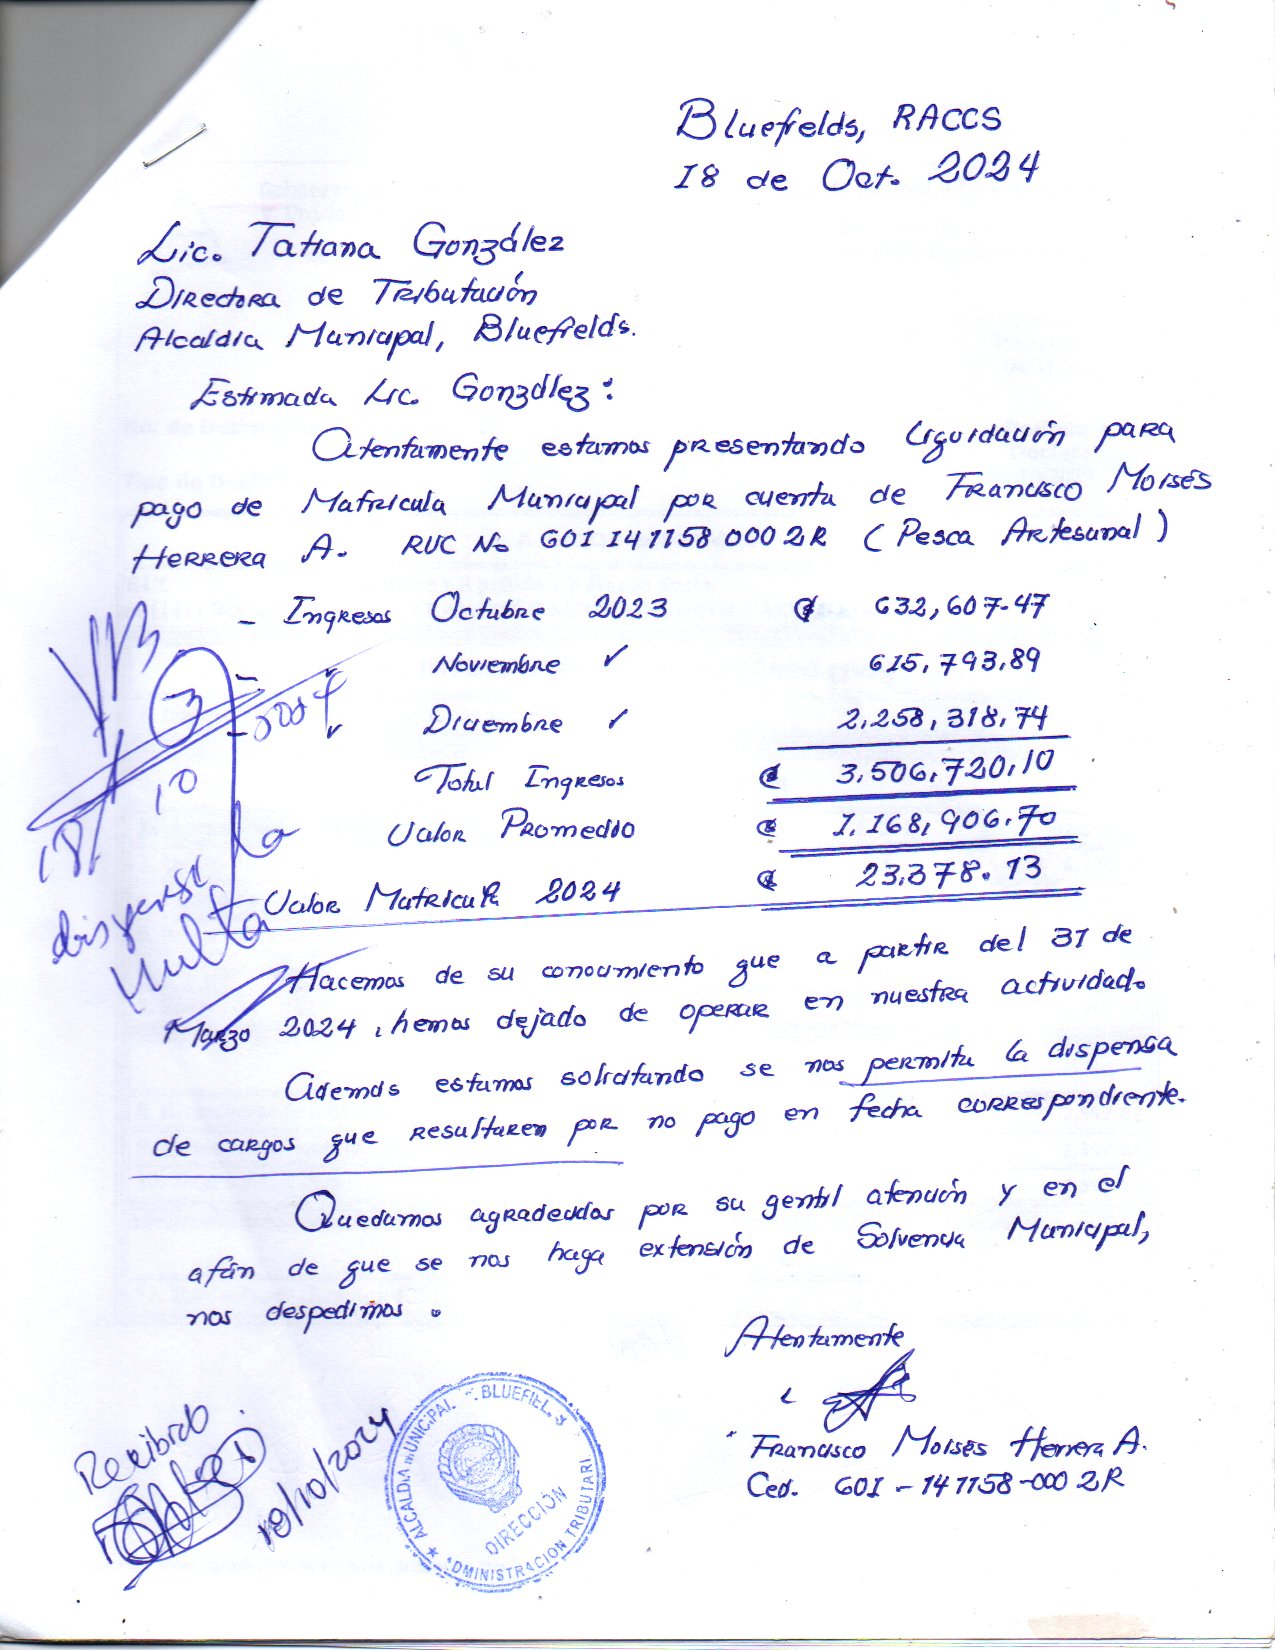 Bluefields, RACCS
18 de Oct. 2024
Lic. Tatiana González
Directora de Tributación
Alcaldía Municipal, Bluefields.
Estimada Lic. González:
Atentamente estamos presentando liquidación para
pago de Matrícula Municipal por cuenta de Francisco Moisés
Herrera A. RUC No 601 141158 0002R (Pesca Artesanal)
- Ingresos Octubre 2023 ₡ 632,607.47
- Noviembre ✓ 615,793.89
- ✓ Diciembre ✓ 2,258,318.74
Total Ingresos ₡ 3,506,720.10
Valor Promedio ₡ 1,168,906.70
Valor Matricula 2024 ₡ 23,378.13
3
18/10
2024
dispensa la
Multa
Hacemos de su conocimiento que a partir del 31 de
Marzo 2024, hemos dejado de operar en nuestra actividad.
Además estamos solicitando se nos permita la dispensa
de cargos que resultaren por no pago en fecha correspondiente.
Quedamos agradecidos por su gentil atención y en el
afán de que se nos haga extensión de Solvencia Municipal,
nos despedimos.
Atentamente
Francisco Moisés Herrera A.
Ced. 601-141158-0002R
Recibido
18/10/2024
ALCALDIA MUNICIPAL BLUEFIEL
DIRECCIÓN
ADMINISTRACION TRIBUTARI